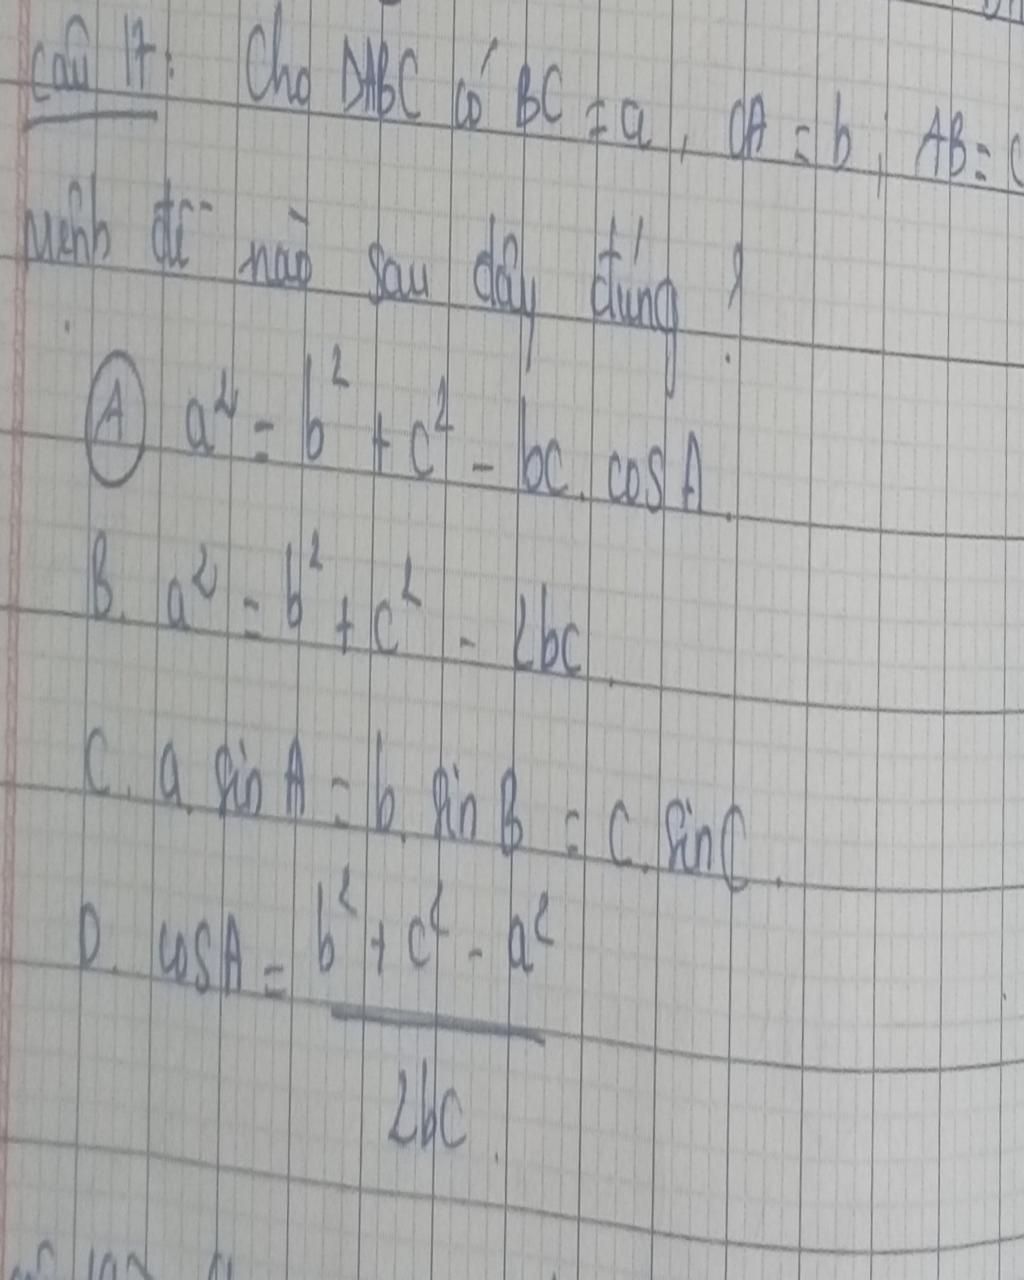 Câu 17: Cho ΔABC có BC = a, CA = b, AB = c
Mệnh đề nào sau đây đúng?
A a² = b² + c² - bc. cosA.
B. a² = b² + c² - 2bc.
C. a. sin A = b. sin B = c. sin C.
D. cosA = b² + c² - a²
2bc.